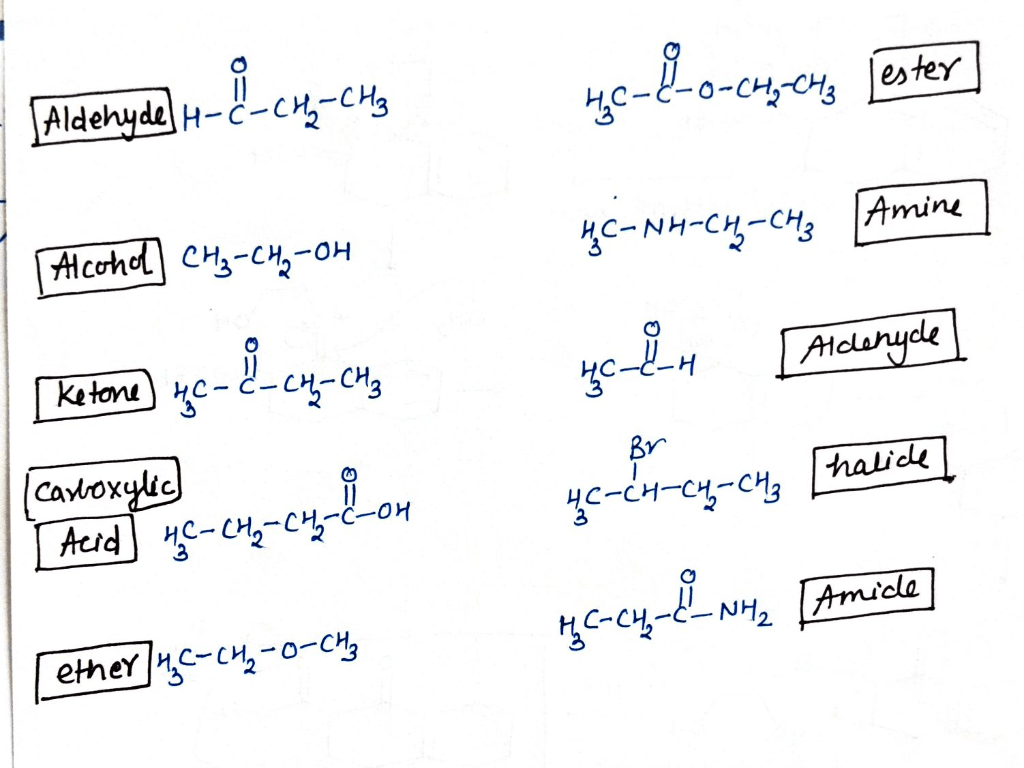 Aldehyde H-C(=O)-CH₂-CH₃
Alcohol CH₃-CH₂-OH
Ketone H₃C-C(=O)-CH₂-CH₃
Carboxylic
Acid H₃C-CH₂-CH₂-C(=O)-OH
ether H₃C-CH₂-O-CH₃
H₃C-C(=O)-O-CH₂-CH₃ ester
H₃C-NH-CH₂-CH₃ Amine
H₃C-C(=O)-H Aldehyde
H₃C-CH(Br)-CH₂-CH₃ halide
H₃C-CH₂-C(=O)-NH₂ Amide